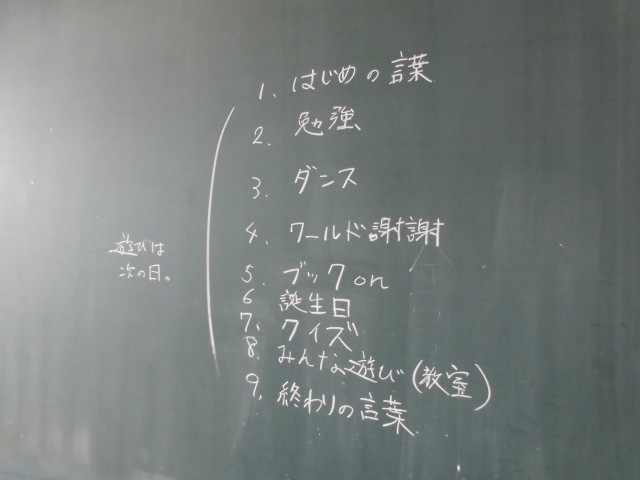 1. はじめの言葉
2. 勉強
3. ダンス
4. ワールド謝謝
5. ブックon
6 誕生日
7. クイズ
8. みんな遊び(教室)
9. 終わりの言葉
遊びは
次の日。